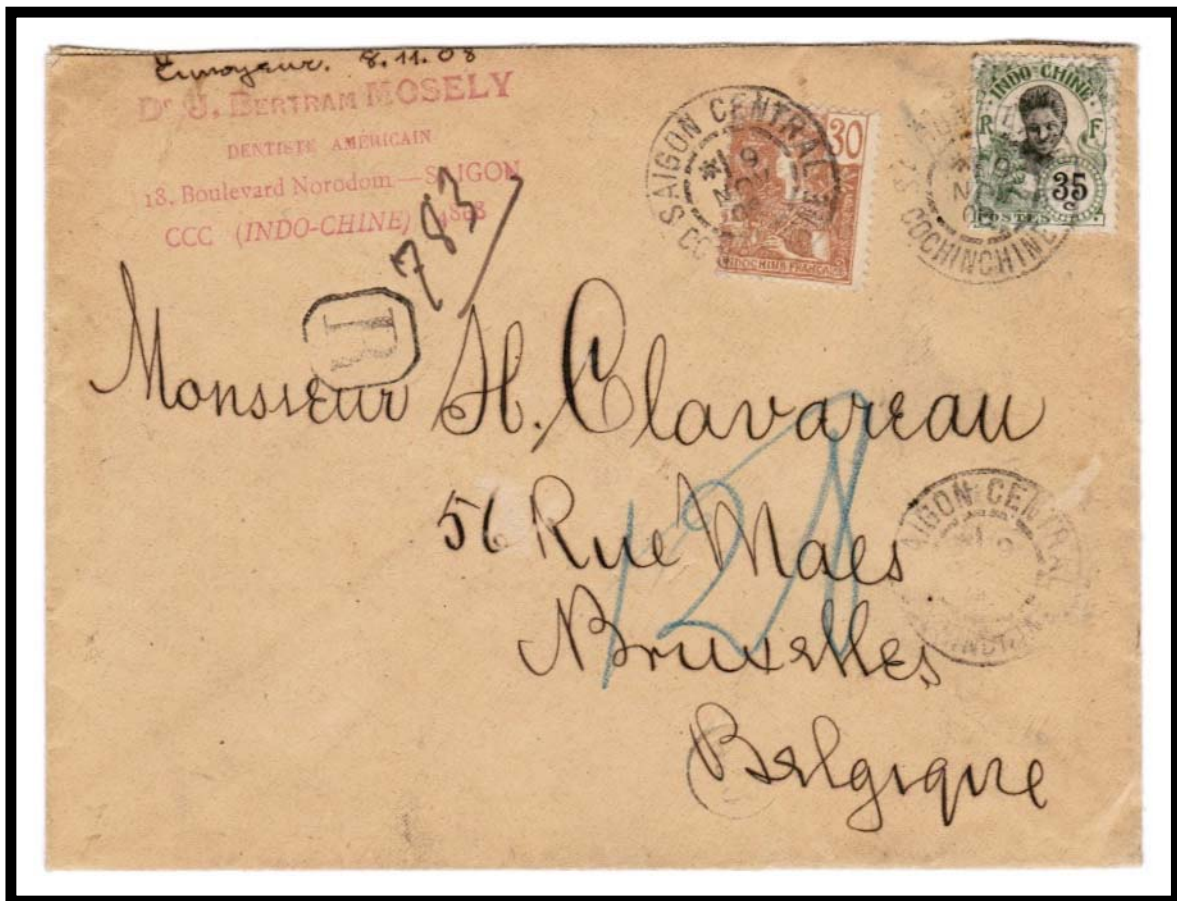 Envoyeur. 8.11.08
Dr J. BERTRAM MOSELY
DENTISTE AMÉRICAIN
18, Boulevard Norodom — SAIGON
CCC (INDO-CHINE)
783
R
SAIGON CENTRAL
9
NOV
30
INDOCHINE FRANÇAISE
INDO-CHINE
R F
35
c
POSTES
COCHINCHINE
Monsieur H. Clavareau
56 Rue Maes
Bruxelles
Belgique
128
SAIGON CENTRAL